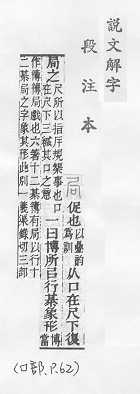 說文解字
段注本
局 促也以疊韵爲訓从口在尺下復
局之尺所以指斥規榘事也口在尺下三緘其口之意一曰博所㠯行棊象形博當
作簙簙局戲也六箸十二棊簙有局以行十
二棊局之字象其形此別一義渠綠切三部
(口部. P.62)